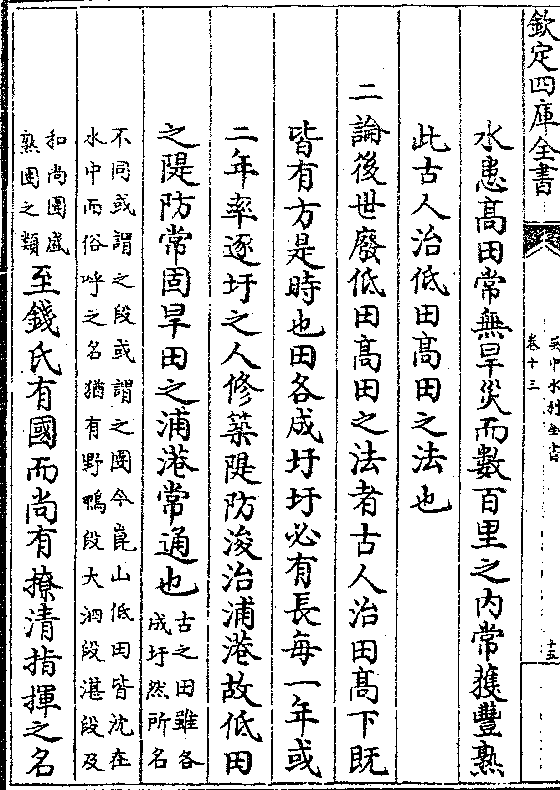 欽定四庫全書
吳中水利全書
卷十三
十五
水患高田常無旱災而數百里之内常獲豐熟
此古人治低田高田之法也
二論後世廢低田高田之法者古人治田高下既
皆有方是時也田各成圩圩必有長每一年或
二年率逐圩之人修築隄防浚治浦港故低田
之隄防常固旱田之浦港常通也古之田雖各
成圩然所名
不同或謂之段或謂之圍今崑山低田皆沈在
水中而俗呼之名猶有野鴨段大泗段湛段及
和尚圍盛
熟圍之類至錢氏有國而尚有撩清指揮之名